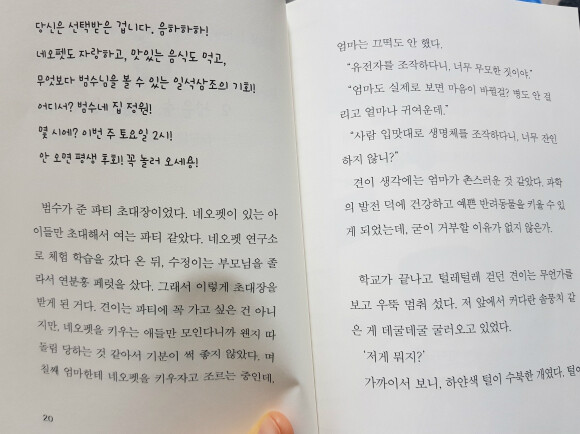 당신은 선택받은 겁니다. 음하하하!
네오펫도 자랑하고, 맛있는 음식도 먹고,
무엇보다 범수님을 볼 수 있는 일석삼조의 기회!
어디서? 범수네 집 정원!
몇 시에? 이번 주 토요일 2시!
안 오면 평생 후회! 꼭 놀러 오세용!
범수가 준 파티 초대장이었다. 네오펫이 있는 아
이들만 초대해서 여는 파티 같았다. 네오펫 연구소
로 체험 학습을 갔다 온 뒤, 수정이는 부모님을 졸
라서 연분홍 페럿을 샀다. 그래서 이렇게 초대장을
받게 된 거다. 견이는 파티에 꼭 가고 싶은 건 아니
지만, 네오펫을 키우는 애들만 모인다니까 왠지 따
돌림 당하는 것 같아서 기분이 썩 좋지 않았다. 며
칠째 엄마한테 네오펫을 키우자고 조르는 중인데,
20
엄마는 끄떡도 안 했다.
“유전자를 조작하다니, 너무 무모한 짓이야.”
“엄마도 실제로 보면 마음이 바뀔걸? 병도 안 걸
리고 얼마나 귀여운데.”
“사람 입맛대로 생명체를 조작하다니, 너무 잔인
하지 않니?”
견이 생각에는 엄마가 촌스러운 것 같았다. 과학
의 발전 덕에 건강하고 예쁜 반려동물을 키울 수 있
게 되었는데, 굳이 거부할 이유가 없지 않은가.
학교가 끝나고 털레털레 걷던 견이는 무언가를
보고 우뚝 멈춰 섰다. 저 앞에서 커다란 솜뭉치 같
은 게 데굴데굴 굴러오고 있었다.
‘저게 뭐지?’
가까이서 보니, 하얀색 털이 수북한 개였다. 털이